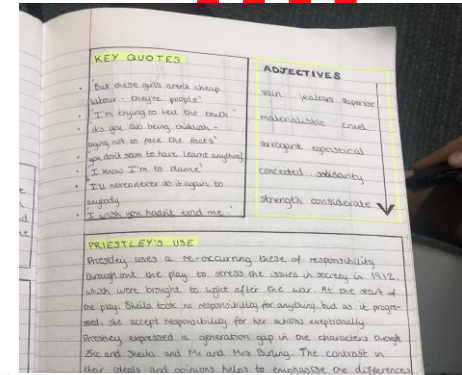 KEY QUOTES
'But these girls aren't cheap
labour - they're people'
'I'm trying to tell the truth'
'its you two being childish -
trying not to face the facts'
'you don't seem to have learnt anything'
'I know I'm to blame'
'I'll never never do it again to
anybody
'I wish you hadn't told me.'
ADJECTIVES
vain jealous superior
materialistic cruel
arrogant egotistical
conceited solidarity
strength considerate
PRIESTLEY'S USE
Priestley uses a re-occurring these of responsibility
through out the play to stress the issues in society in 1912,
which were brought to light after the war. At the start of
the play, Sheila took no responsibility for anything, but as it progre-
ssed, she accept responsibility for her actions exeptionally.
Priestley expressed a generation gap in the characters through
Eric and Sheila and Mr and Mrs Birling. The contrast in
their ideals and opinions helps to emphasise the differences